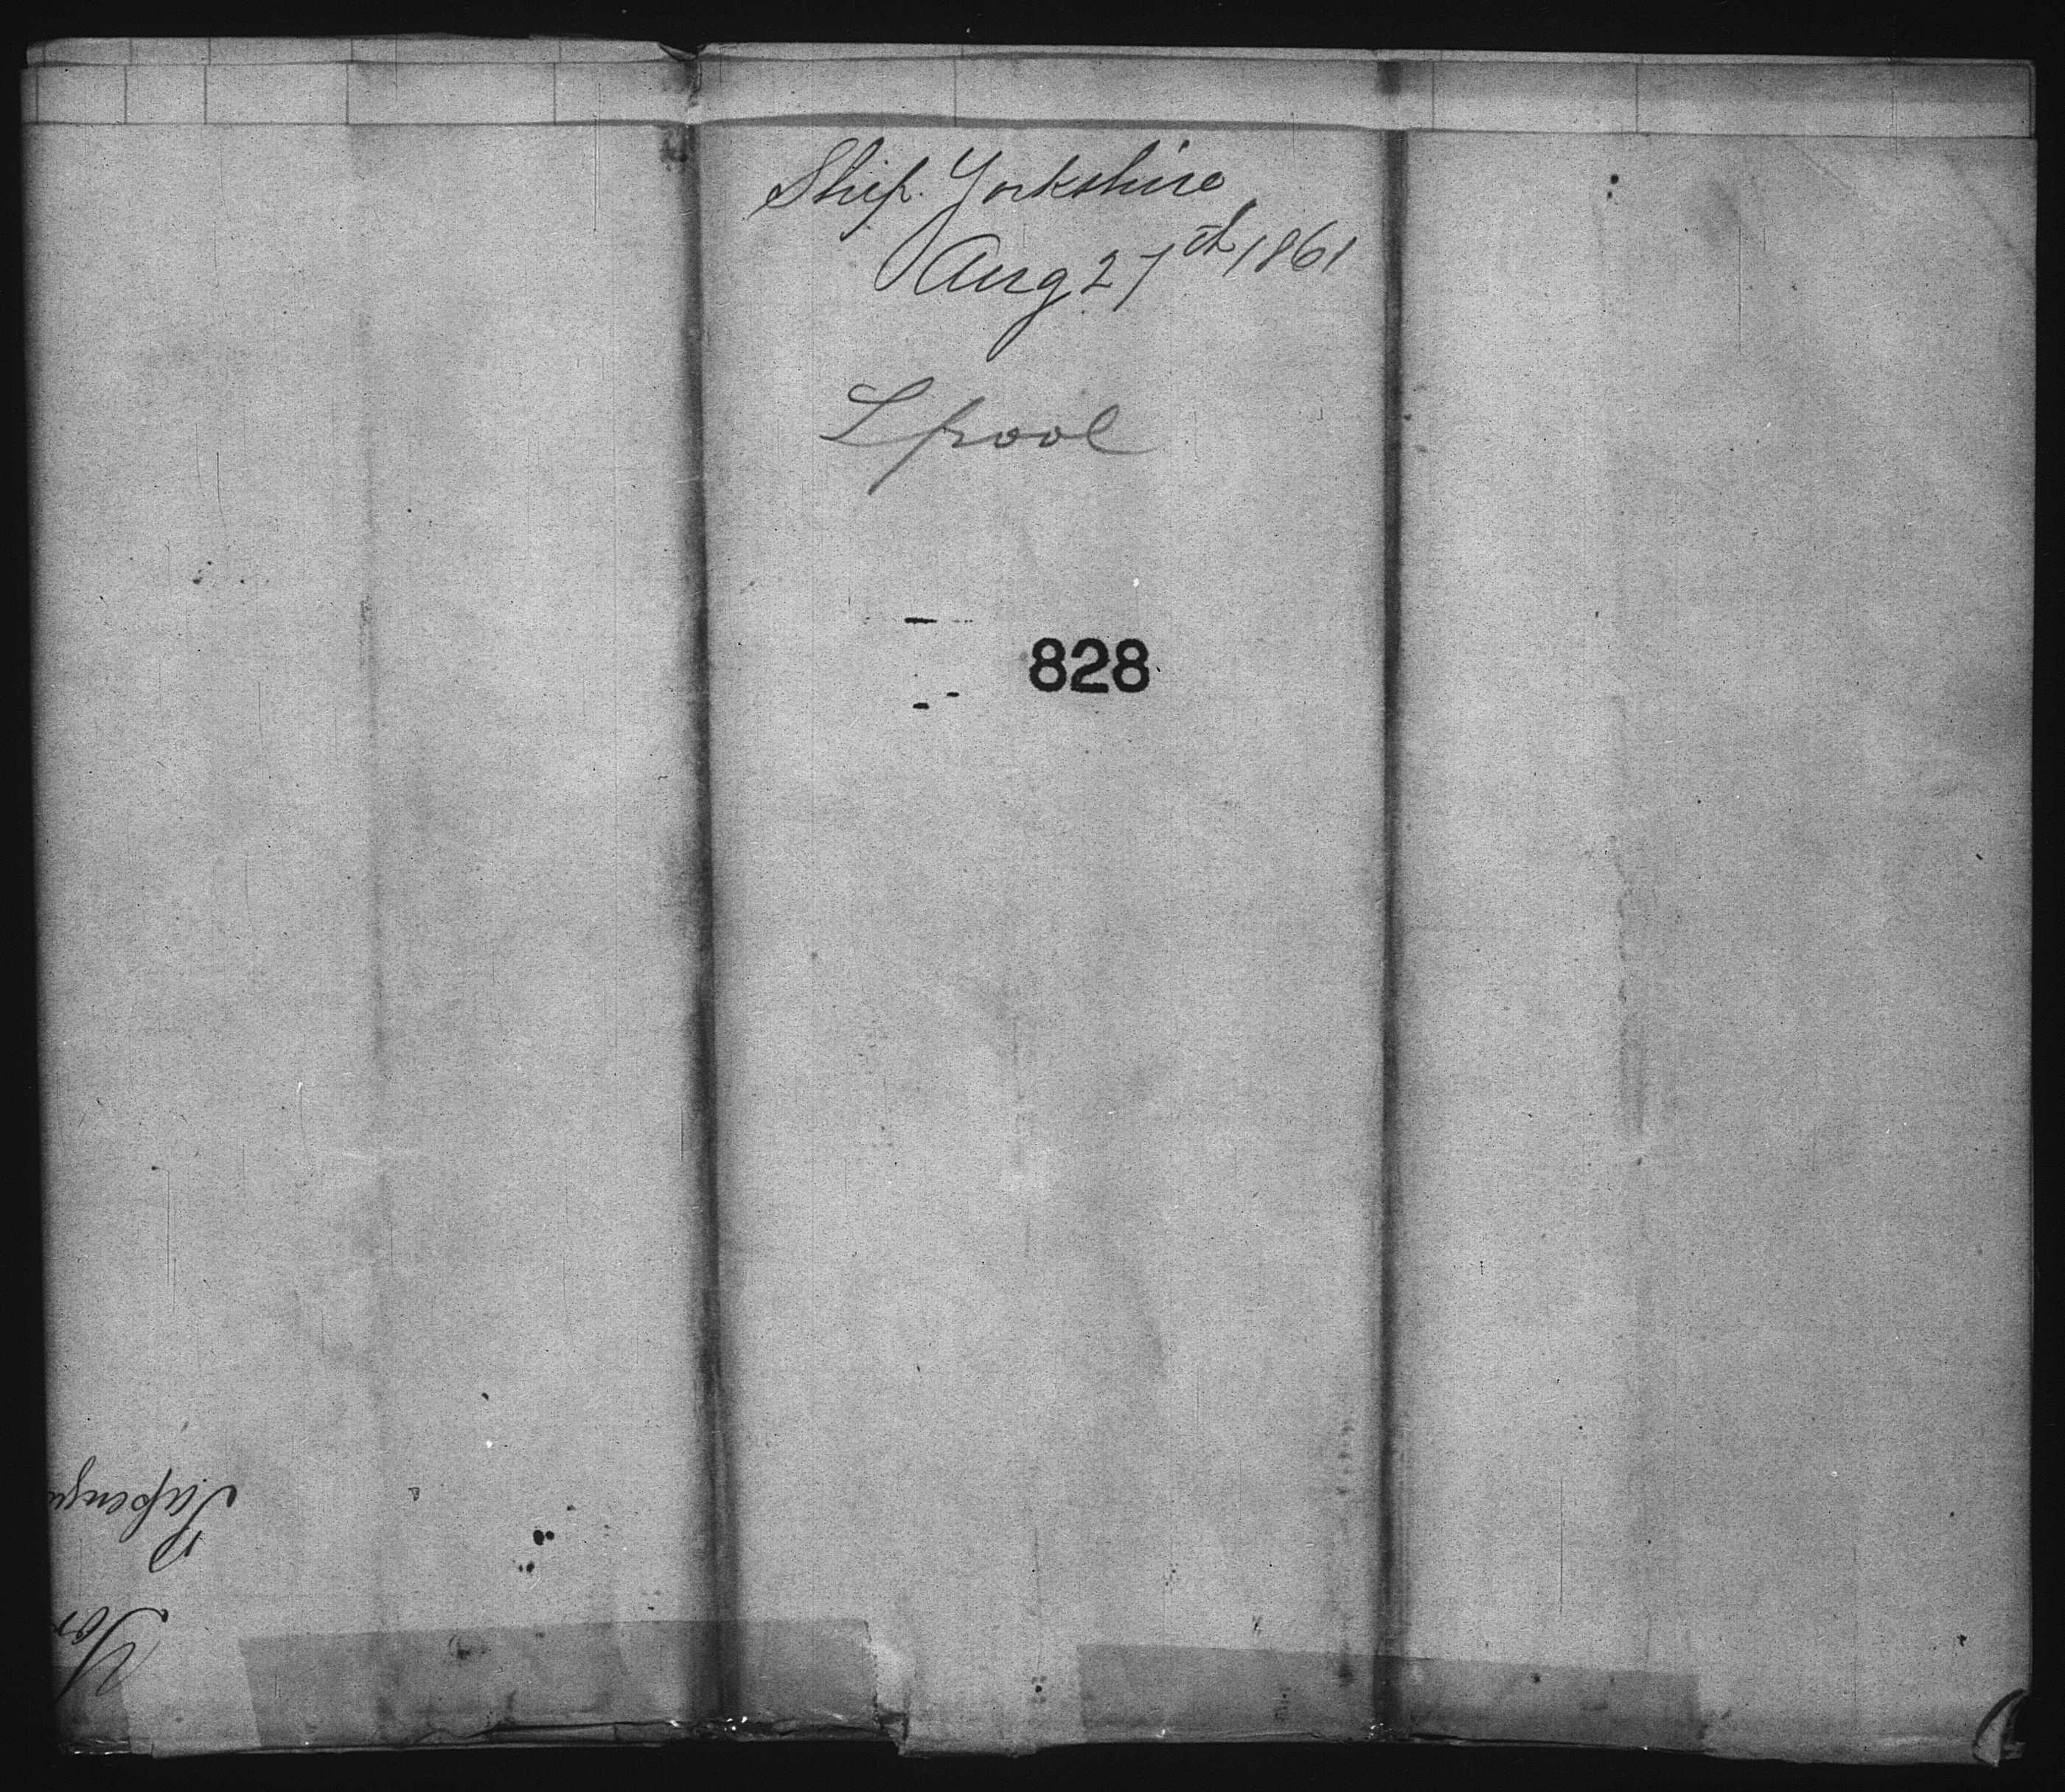 Ship Yorkshire
Aug 27th 1861
Lpool
828